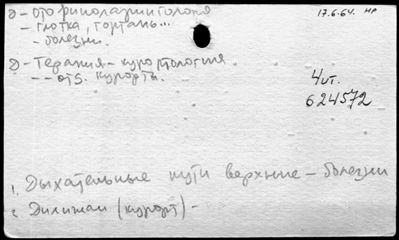 Д-оториноларингология
17.6.64. НР
- глотка, гортань...
- болезни.
Д-Терапия - курортология.
-- отд. курорты.
Чит.
624572
1. Дыхательные пути верхние - болезни
2. Дилижан (курорт) -